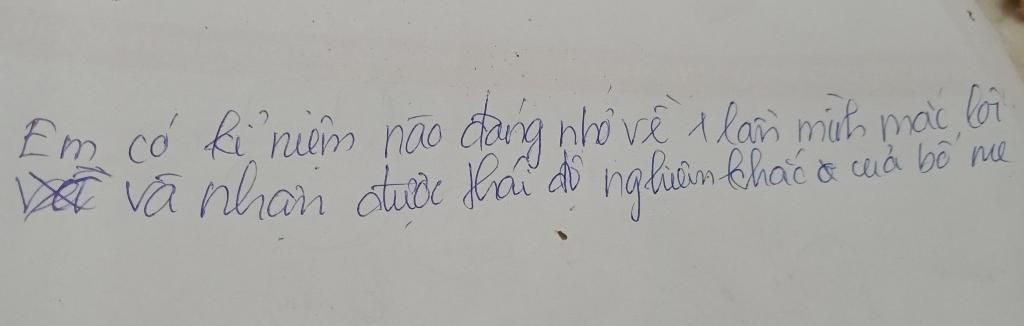 Em có kỉ niệm nào đáng nhớ về 1 lần mình mắc lỗi
và nhận được thái độ nghiêm khắc của bố mẹ